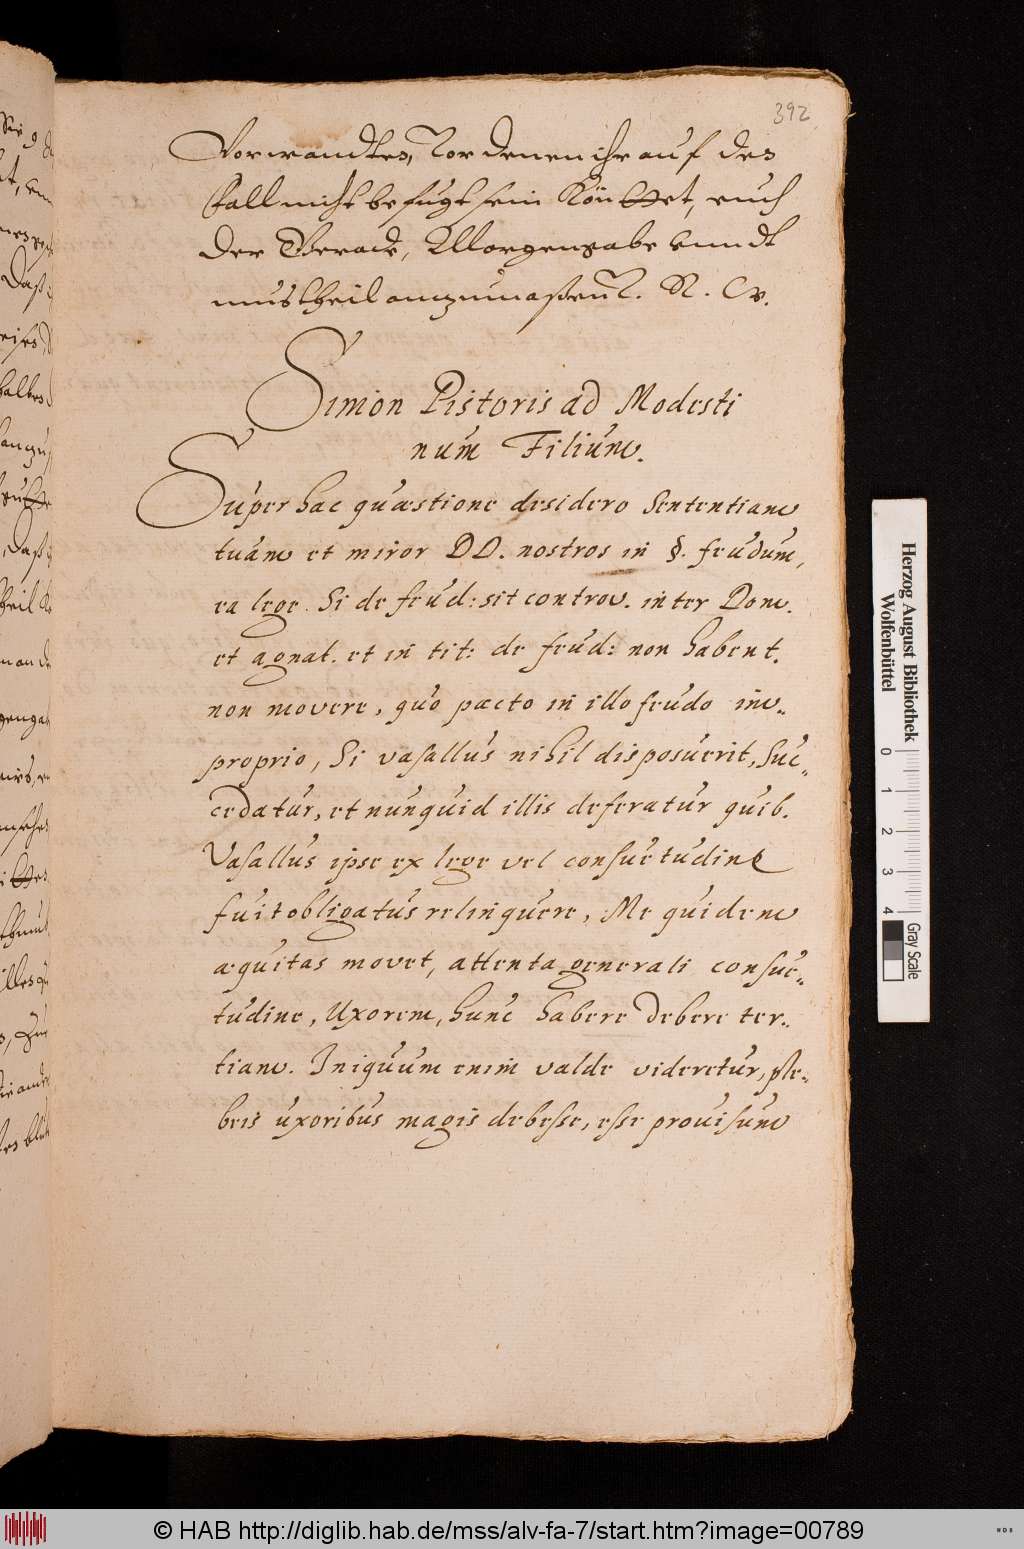 392
Vorwandtes, vor denen ihr auf den
fall nicht befugt sein köntet, euch
der Gerade, Morgengabe vnndt
mustheil anzumaßenn. V. R. W.
Simon Pistoris ad Modesti
num Filium.
Super hac quæstione desidero sententiam
tuam et miror DD. nostros in §. feudum,
ea lege. Si de feud: sit controv. inter Dom.
et agnat. et in tit: de feud: non habent.
non movere, quo pacto in illo feudo im-
proprio, Si vasallus nihil disposuerit, suc-
cedatur, et nunquid illis deferatur quib.
Vasallus ipse ex lege vel consuetudine
fuit obligatus relinquere, Me quidem
æquitas movet, attenta generali consue-
tudine, Uxorem, hunc habere debere ter-
tiam. Iniquum enim valde videretur, ple-
beis uxoribus magis debesse, esse provisum
Herzog August Bibliothek
Wolfenbüttel
0 1 2 3 4
Gray Scale
© HAB http://diglib.hab.de/mss/alv-fa-7/start.htm?image=00789